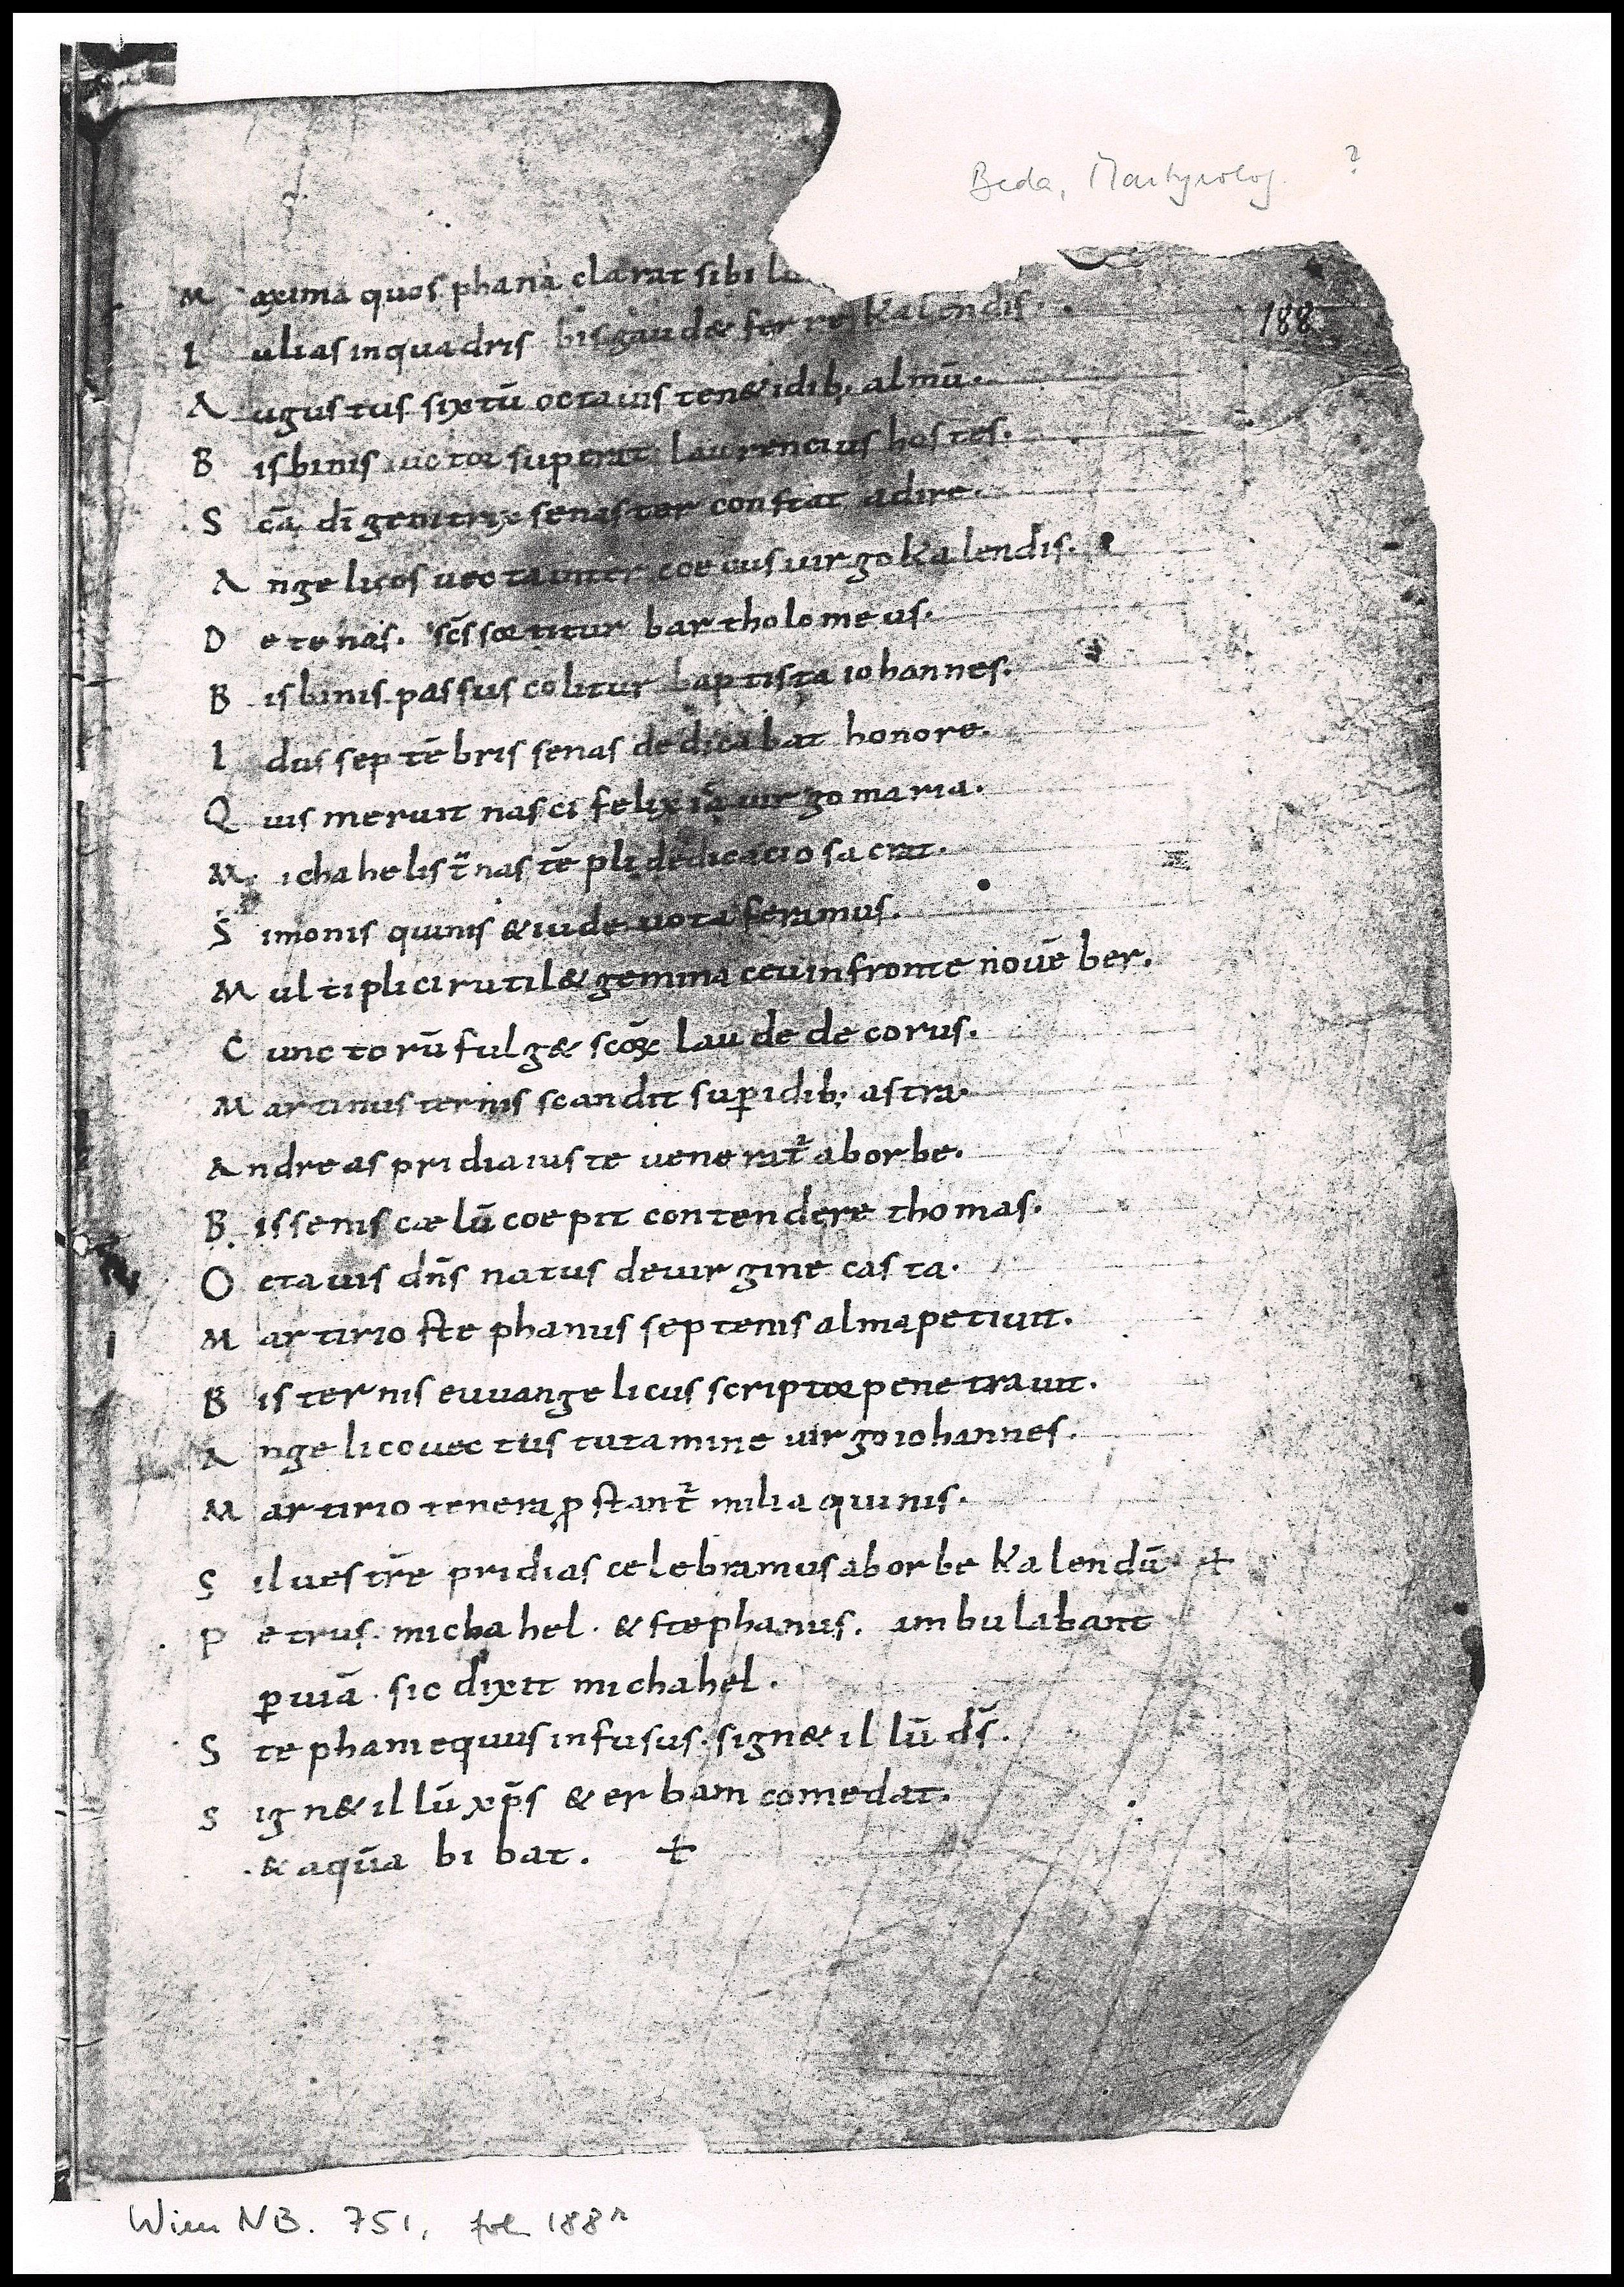 Beda, Martyrolog. ?
M axima quos phana clarat sibi
188
I ulias inquadris bisgaud& ferre kalendis.
A ugustus sixtū octauis ten&idib; almū.
B isbinis uictor superat laurencius hostes.
S cā dī genitrix senas ter constat adire.
A ngelicos uecta inter coetus uirgo kalendis.
D etenas. scs sortitur bartholomeus.
B isbinis passus colitur baptista iohannes.
I dus septēbris senas dedicabat honore.
Q uis meruit nasci felix iā uirgo maria.
M ichahelis t̄nas tēpli dedicacio sacrat.
S imonis quinis &iude uota feramus.
M ultiplicirutil& gemma ceuinfronte novēber.
C unctorū fulg& scōꝝ laude decorus.
M artinus ternis scandit suꝑidib; astra.
A ndreas pridiaiuste venerat̄ aborbe.
B issenis cælū coepit contendere thomas.
O ctauis dn̄s natus deuirgine casta.
M artirio stephanus septenis almapetiuit.
B isternis euuangelicus scriptor penetrauit.
A ngelico uectus tutamine uirgo iohannes.
M artirio tenera ꝓstant̄ milia quinis.
S iluestrē pridias celebramus aborbe kalendū +
P etrus. michahel. & stephanus. ambulabant
ꝑuiā. sic dixit michahel.
S tephani equus infusus. sign& illū ds̄.
S ign& illū xp̄s & erbam comedat.
& aquā bibat. +
Wien NB. 751, fol 188r